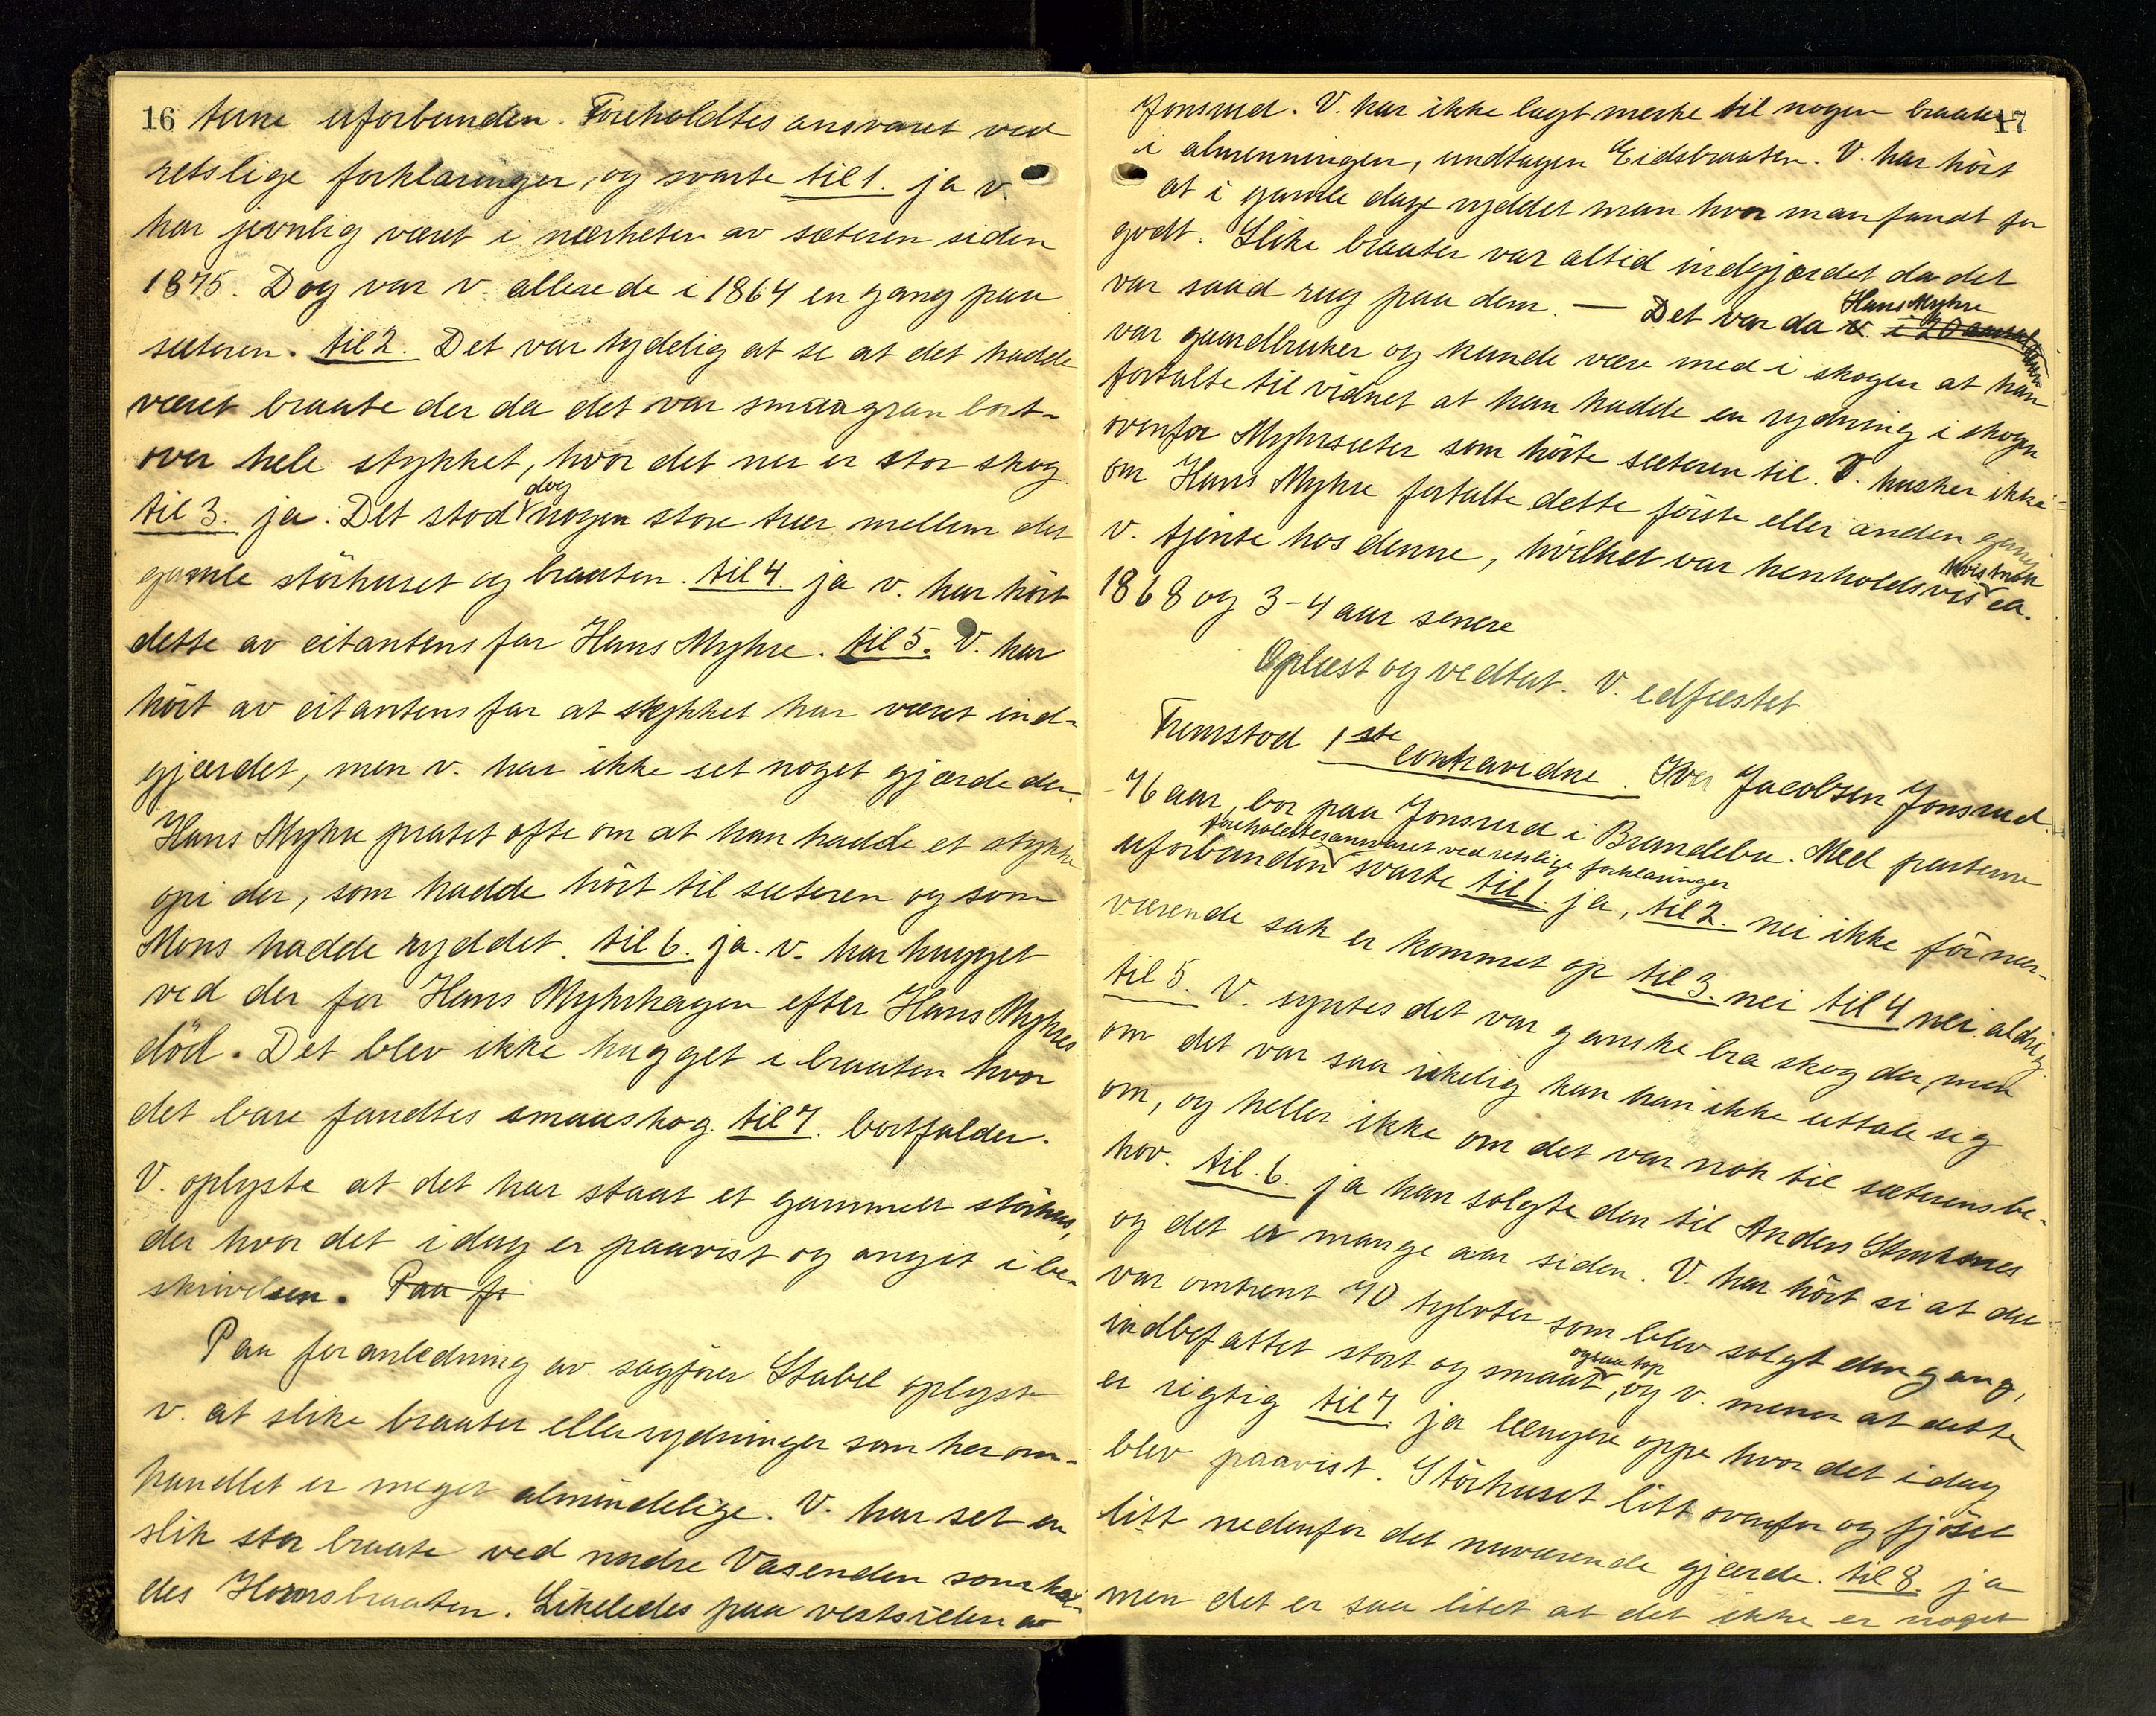 16 terne uforbunden. Foreholdtes ansvaret ved
retslige forklaringer, og svarte til 1. ja v.
har jevnlig været i nærheten av sæteren siden
1875. Dog var v. allerede i 1864 en gang paa
sæteren. til 2. Det var tydelig at se at det hadde
været braate der da det var smaagran bort-
over hele stykket, hvor det nu er stor skog
til 3. ja. Det stod dog nogen store trær mellem det
gamle störhuset og braaten. til 4. ja v. har hört
dette av citantens far Hans Myhre. til 5. V. har
hört av citantens far at stykket har været ind-
gjærdet, men v. har ikke set noget gjærde der.
Hans Myhre pratet ofte om at han hadde et stykke
opi der, som hadde hört til sæteren og som
Mons hadde ryddet. til 6. ja. v. har hugget
ved der for Hans Myhrhagen efter Hans Myhres
död. Det blev ikke hugget i braaten hvor
det bare fandtes smaaskog. til 7. bortfalder.
V. oplyste at det har staat et gammelt störhus,
der hvor det idag er paavist og angit i be-
skrivelsen. Paa fo
Paa foranledning av sagförer Stabel oplyste
v. at slike braater eller rydninger som her om-
handlet er meget almindelige. V. har set en
slik stor braate ved nordre Vasenden som kal-
des Hornsbraaten. Likeledes paa vestsiden av
17
Jonsrud. V. har ikke lagt merke til nogen braater
i almenningen, undtagen Eidsbraaten. V. har hört
at i gamle dage ryddet man hvor man fandt for
godt. Slike braater var altid indgjærdet da det
var saad rug paa dem. — Det var da v. Hans Myhre
var gaardbruker og kunde være med i skogen at han
fortalte til vidnet at han hadde en rydning i skogen
ovenfor Myhrsæter som hörte sæteren til. V. husker ikke
om Hans Myhre fortalte dette förste eller anden gang
v. tjente hos denne, hvilket var henholdsvis ca.
1868 og 3-4 aar senere
Oplæst og vedtat. V. edfæstet
Fremstod 1ste contravidne. Iver Jacobsen Jonsrud
76 aar, bor paa Jonsrud i Brandebu. Med parterne
uforbunden foreholdtes ansvaret ved retslige forklaringer svarte til 1. ja, til 2. nei ikke för nær-
værende sak er kommet op til 3. nei til 4 nei aldrig
til 5. V. syntes det var ganske bra skog der, men
om det var saa rikelig kan han ikke uttale sig
om, og heller ikke om det var nok til sæterens be-
hov. til. 6. ja han solgte den til Anders Struksnes
og det er mange aar siden. V. har hört si at det
var omtrent 70 tylvter som blev solgt dengang,
indbefattet stort og smaat, ogsaa top og v. mener at dette
er rigtig til 7. ja længere oppe hvor det idag
blev paavist. Störhuset litt ovenfor og fjöset
litt nedenfor det nuværende gjærde. til 8. ja
men det er saa litet at det ikke er noget